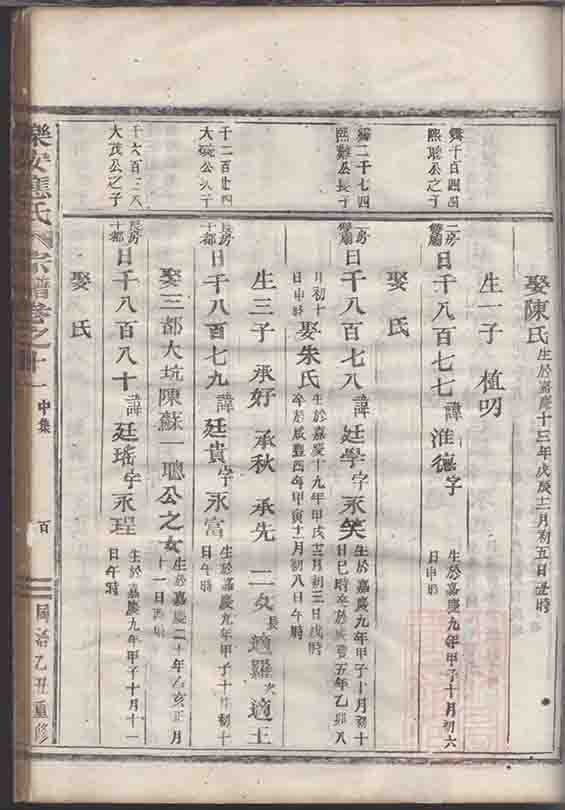 娶陳氏生於嘉慶十三年戊辰十二月初五日丑時
生一子 植叨
熙聰公之子
二房
日千八百七七諱淮德字 生於嘉慶九年甲子十月初六日申時
娶氏
二千七四
熙 公長子
二房
日千八百七八諱廷學字永笑 生於嘉慶九年甲子十月初十日巳時卒於咸豐五年乙卯八
月初十日申時 娶朱氏 生於嘉慶十九年甲戌十二月初三日戌時卒於咸豐四年甲寅十一月初八日午時
生三子 承好 承秋 承先 二女長適羅次適王
千二百廿四
大碗公次子
長房
十都
日千八百七九諱廷貴字永富 生於嘉慶九年甲子十月初十日午時
娶三都大坑陳蘇一聰公之女 生於嘉慶二十年乙亥正月十一日酉時
千六百三八
大茂公之子
長房
十都
日千八百八十諱廷瑤字永珵 生於嘉慶九年甲子十月十一日午時
娶氏
樂安應氏宗譜卷之十一 中集 百 同治乙丑重修